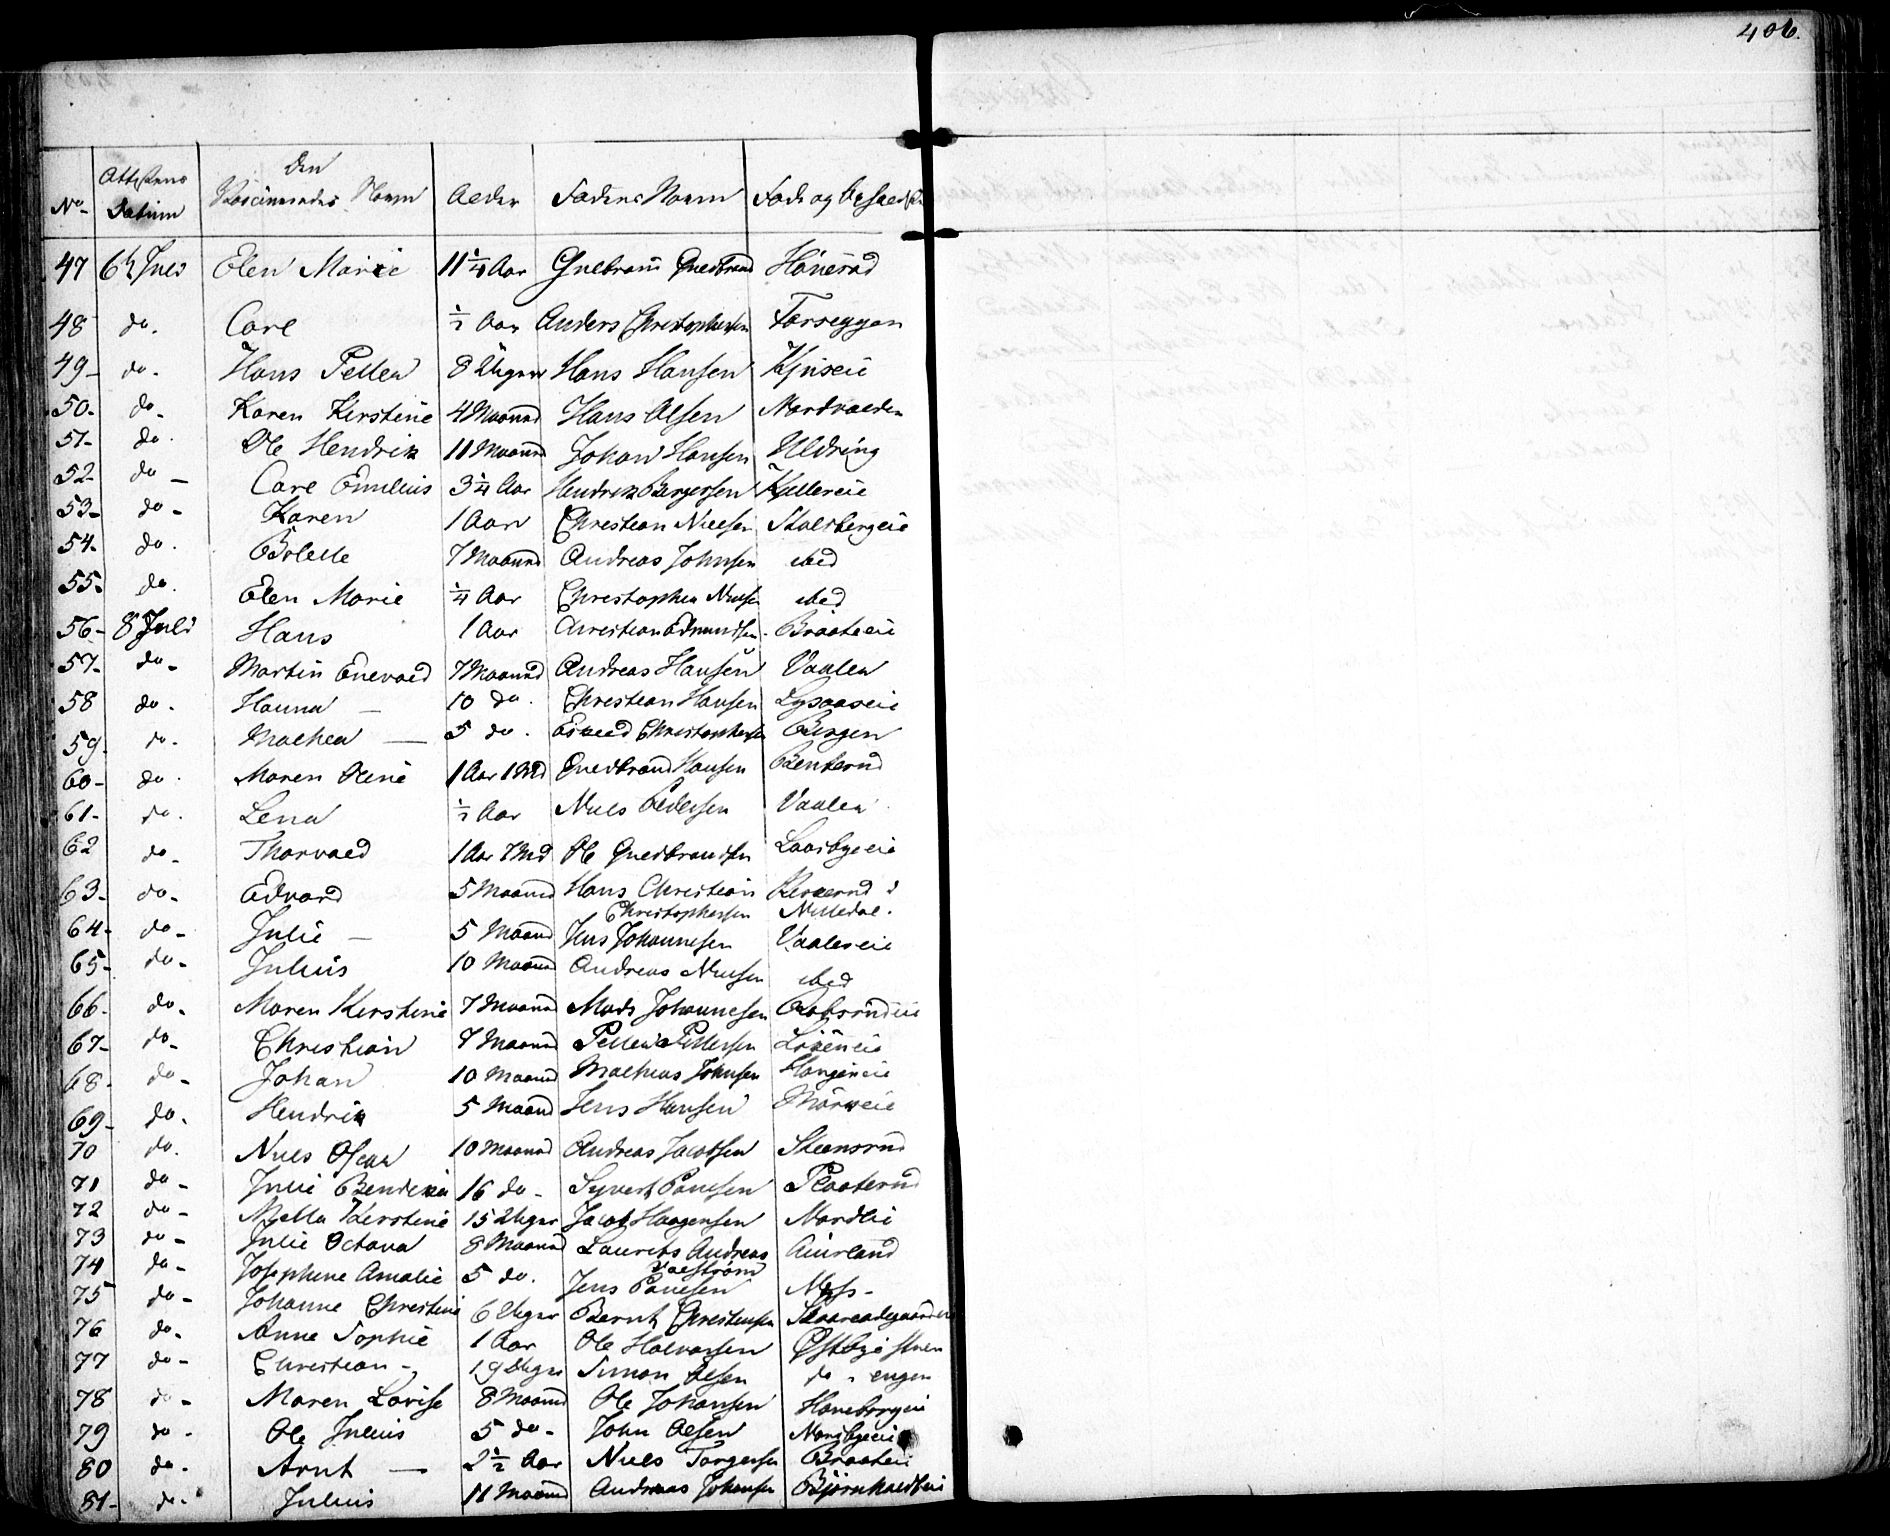 406.
No Attestens Datum Den Vaccineredes Navn Alder Faderens Navn Føde og
47 6te Juli Elen Marie 11 1/4 Aar Gulbrand Guldbrand
48 do. Carl 1/2 Aar Anders Christophersen
49 do. Hans Petter 8 Uger Hans Hansen
50. do. Karen Kirstine 4 Maaned Hans Olsen Nordvolden
51 do. Ole Hendrik 11 Maaned Johan Hansen
52 do Carl Emilius 3 1/4 Aar Hendrik Børgersen
53 do. Karen 1 Aar Christian Nielsen Stalsbergeie
54. do. Bolette 7 Maaned Andreas Johnsen ibid
55 do. Elen Marie 1/4 Aar Christopher Nielsen ibid
56 8 Juli Hans 1 Aar Christian Edmundsen Braateeie
57. do. Martin Enevold 7 Maaned Andreas Hansen Vaaler
58 do. Hanna 10 do. Christian Hansen Lysaaseie
59. do. Mathea 5 do. Christophersen Bergen
60 do. Maren Oline 1 Aar 1 Md Guldbrand Hansen Benterud
61 do. Lena 1/2 Aar Niels Pedersen Vaaler
62 do. Thorvald 1 Aar 7 Md Ole Guldbrandsen
63 do. Edvard 5 Maaned Hans Christian
Christophersen Nittedal.
64 do. Julie 5 Maaned Jens Johannesen Vaalereie
65 do. Julius 10 Maaned Andreas Nielsen ibid
66 do. Maren Kirstine 7 Maaned Mads Johannesen
67 do. Christian 7 Maaned Petter Pettersen
68 do. Johan 10 Maaned Mathias Johnsen Haugeneie
69 do. Hendrik 5 Maaned Jens Hansen
70 do. Niels Oscar 10 Maaned Andreas Jacobsen Steensrud
71 do. Julie Bendikia 16 do. Syvert Paulsen Plaaterud
72 do. Kirstine 15 Uger Jacob Haagensen Nordlie
73 do. Julie Octava 8 Maaned Laurits Andreas Aurland
74 do. Josephine Amalie 5 do. Jens Paulsen Ness
75 do. Johanne Christine 6 Uger Bernt Christensen
76 do. Anne Sophie 1 Aar Ole Halvorsen
77 do. Christian 19 Uger Simon Olsen do engen
78 do. Maren Lovise 8 Maaned Ole Johansen Haneborgeie
79 do. Ole Julius 5 do. John Olsen
80 do. Arnt 2 1/2 Aar Niels Torgersen Braateeie
81 do. Julius 11 Maaned Andreas Johansen